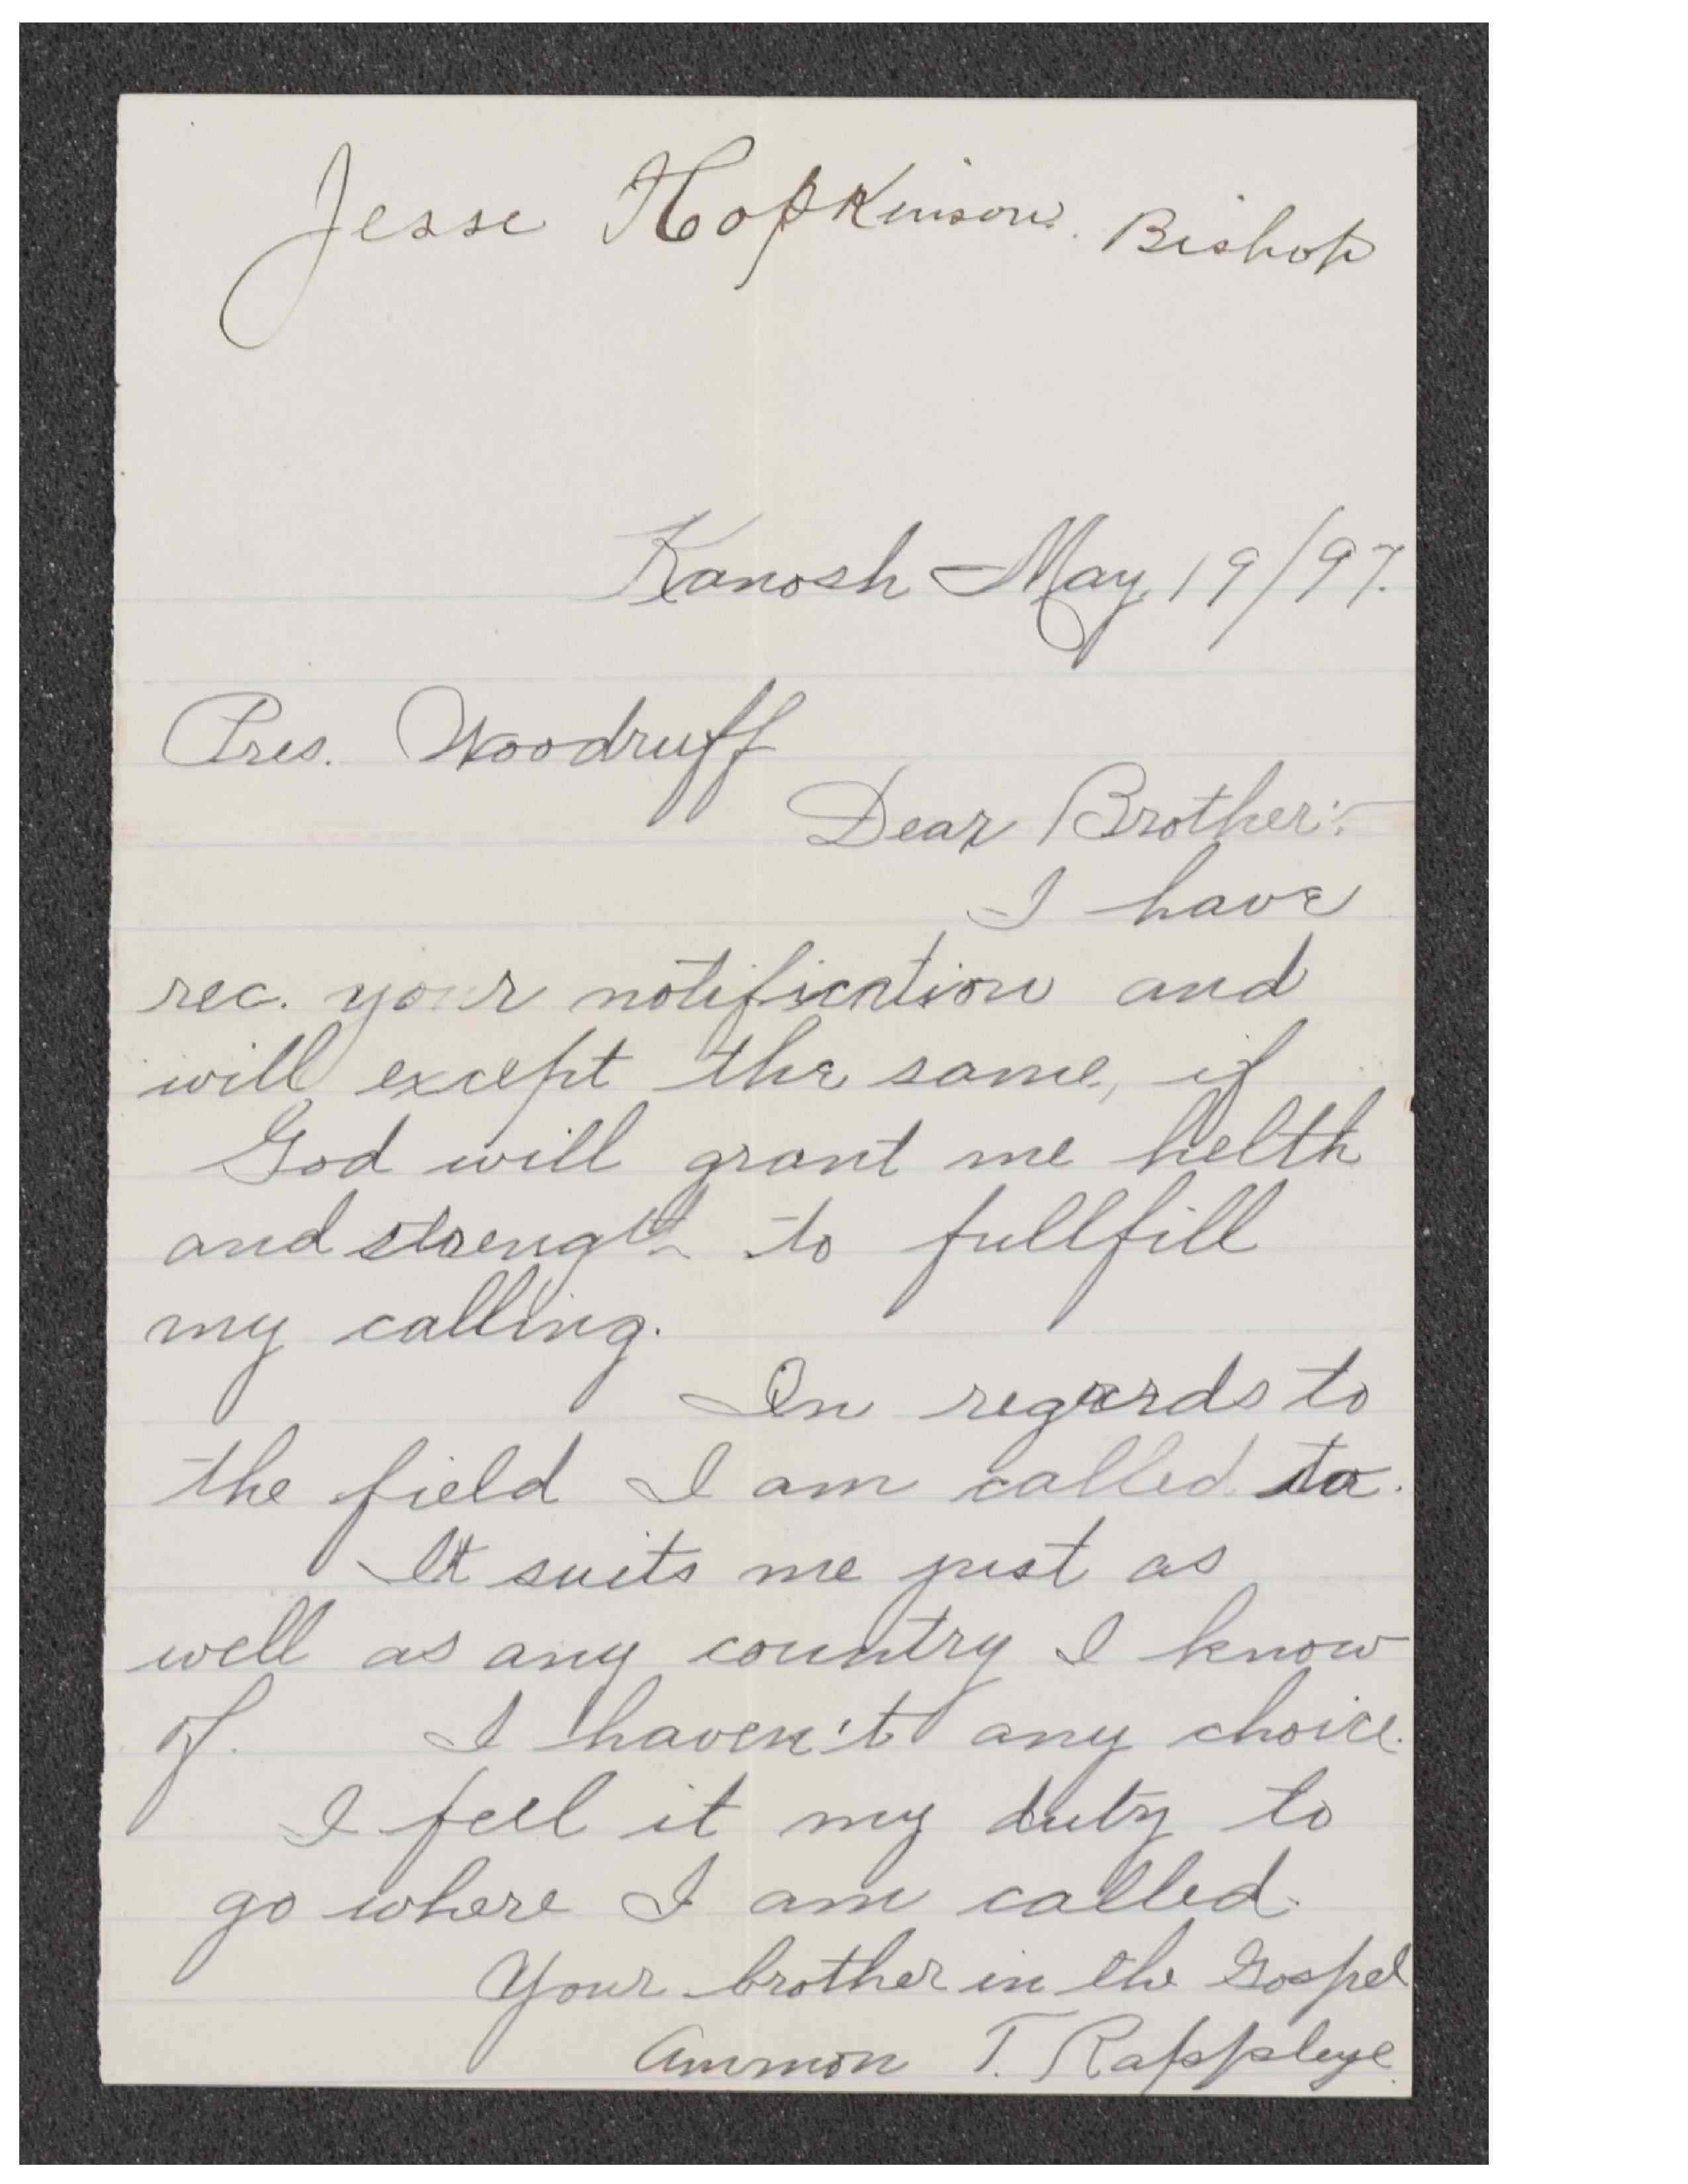 Jesse Hopkinson. Bishop
Kanosh May, 19/97.
Pres. Woodruff
Dear Brother:-
I have
rec. your notification and
will except the same, if
God will grant me helth
and strength to fullfill
my calling.
In regards to
the field I am called to.
It suits me just as
well as any country I know
of. I haven't any choice.
I feel it my duty to
go where I am called.
Your brother in the Gospel
Ammon T. Rappleye.